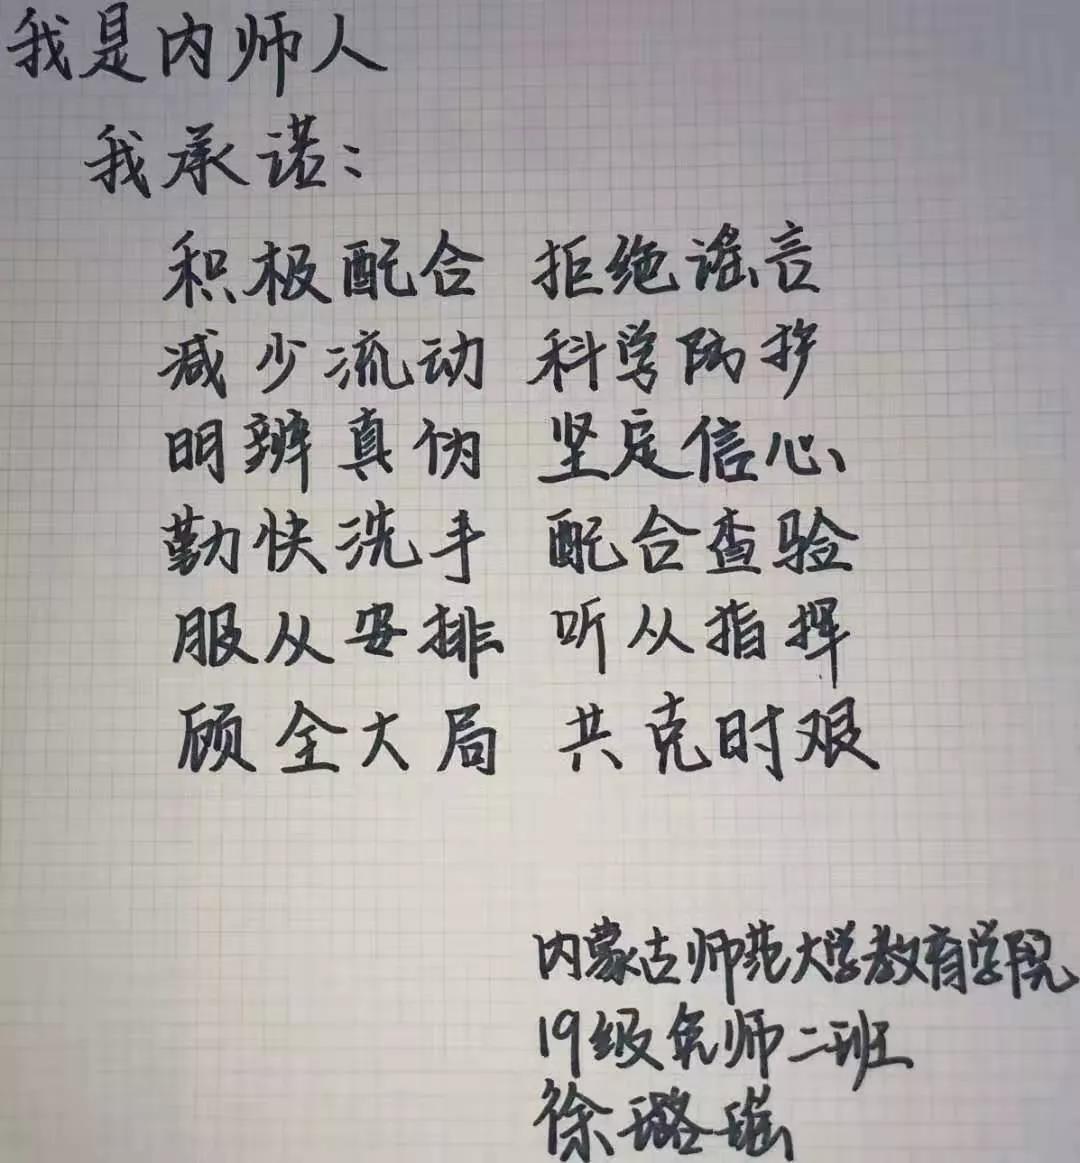 我是内师人
我承诺:
积极配合 拒绝谣言
减少流动 科学防护
明辨真伪 坚定信心
勤快洗手 配合查验
服从安排 听从指挥
顾全大局 共克时艰
内蒙古师范大学教育学院
19级免师二班
徐璐瑶